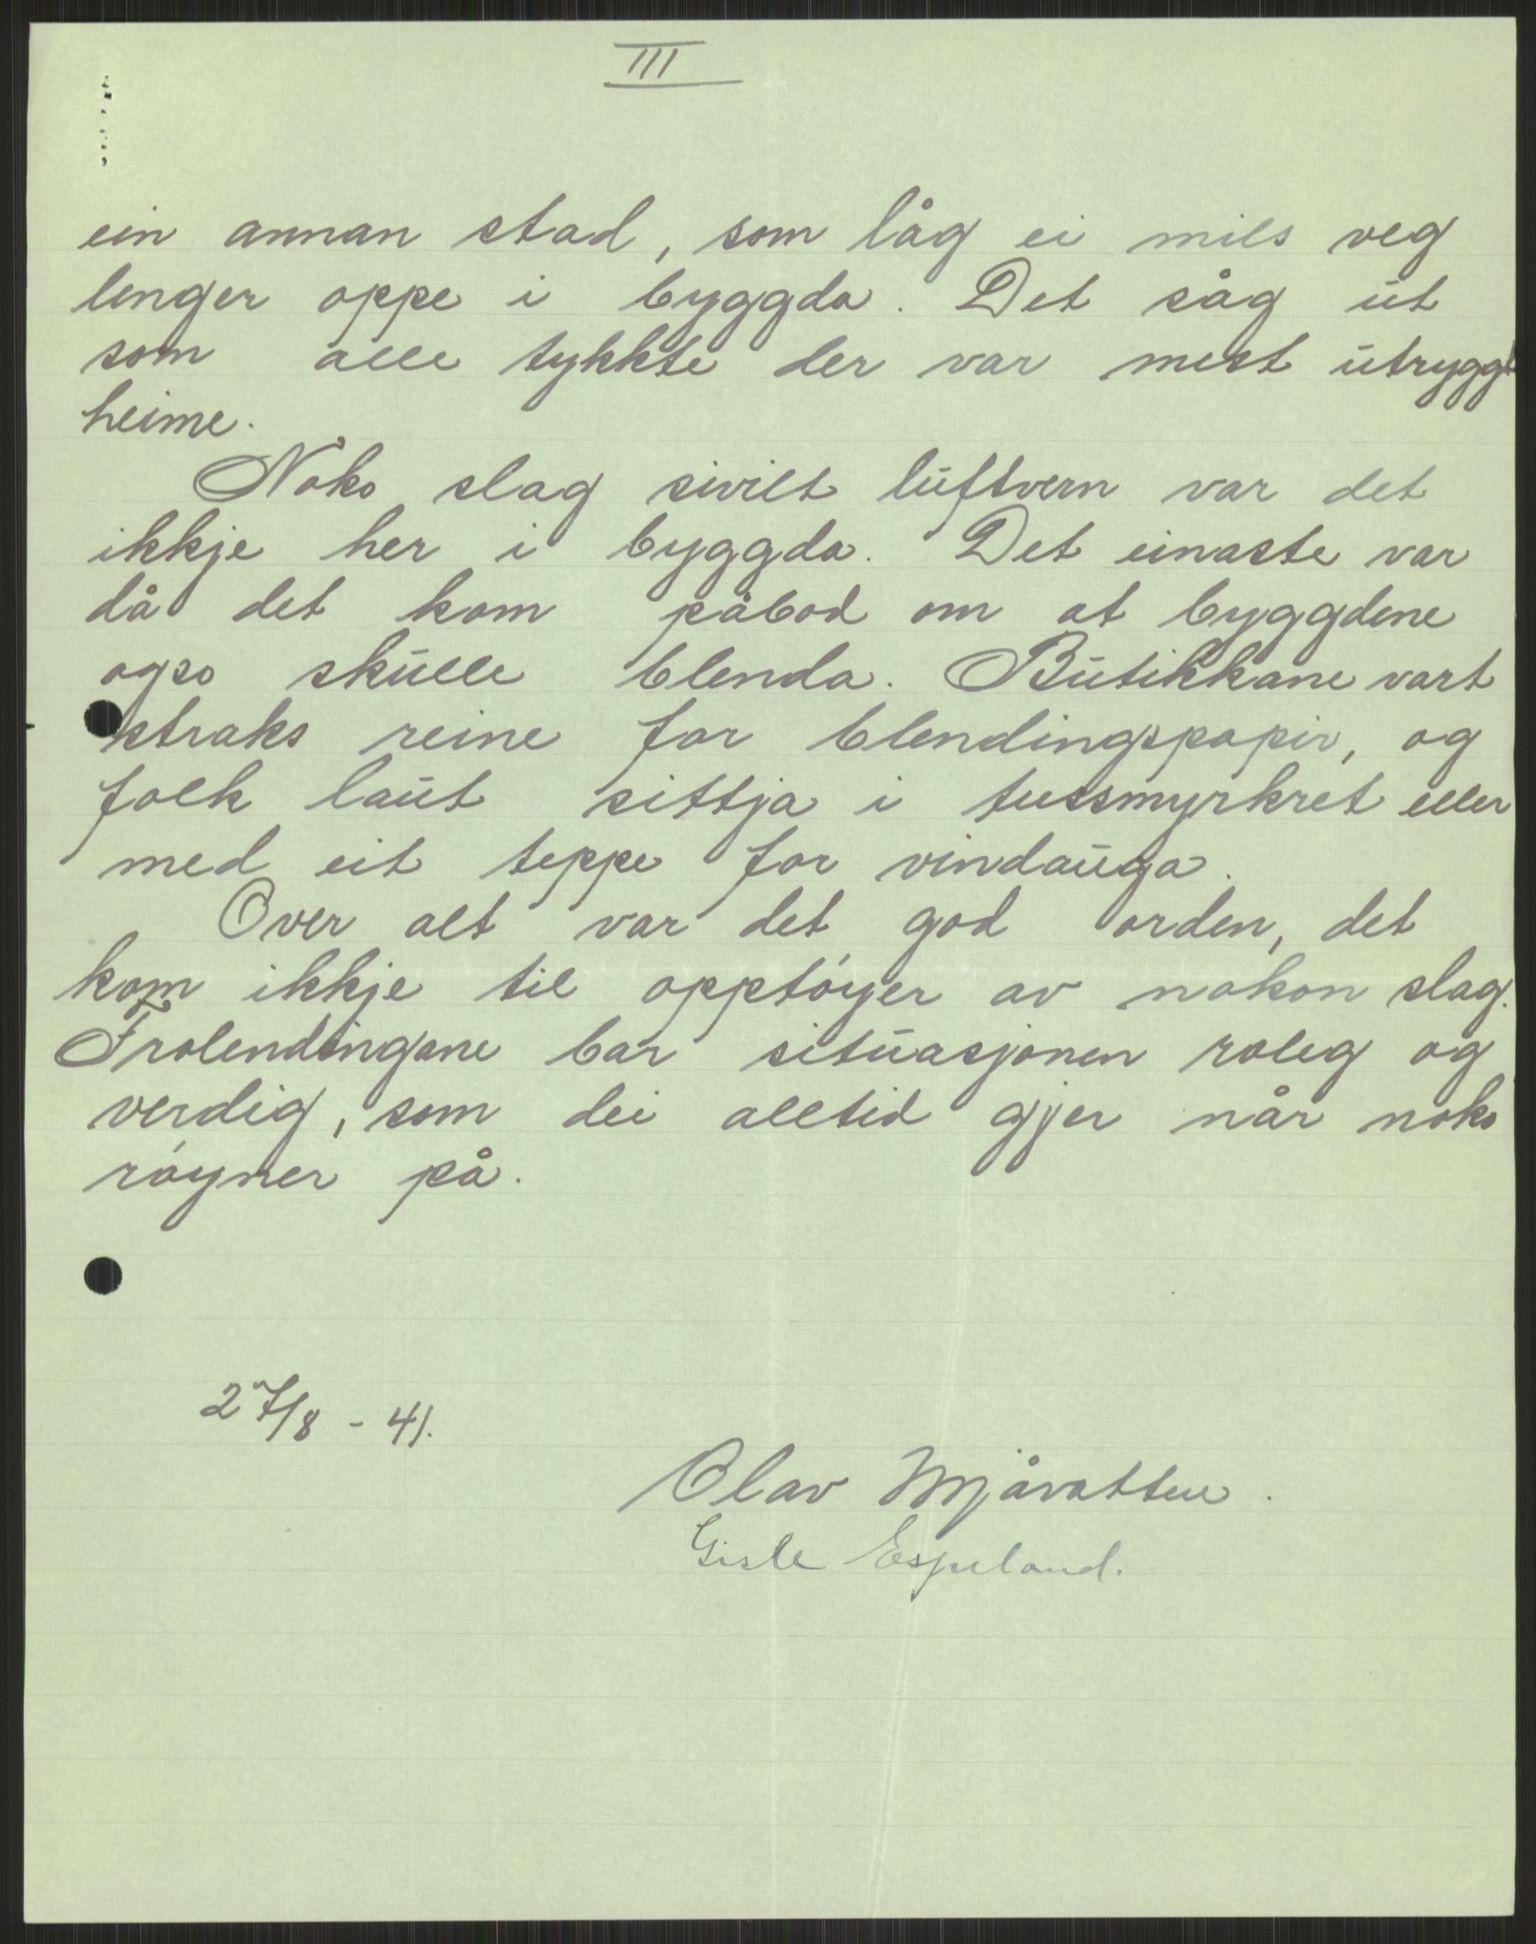 III
ein annan stad, som låg ei mils veg
lenger oppe i byggda. Det såg ut
som alle tykkte der var mest utryggt
heime.
Noko slag sivilt luftvern var det
ikkje her i byggda. Det einaste var
då det kom påbod om at byggdene
ogso skulle blenda. Butikkane vart
straks reine for blendingspapir, og
folk laut sittja i tussmyrkret eller
med eit teppe for vindauga.
Over alt var det god orden, det
kom ikkje til opptøyer av nokon slag.
Frolendingane bar situasjonen roleg og
verdig, som dei alltid gjer når noko
røyner på.
27/8 - 41.
Olav Mjåvatten.
Gisle Espeland.